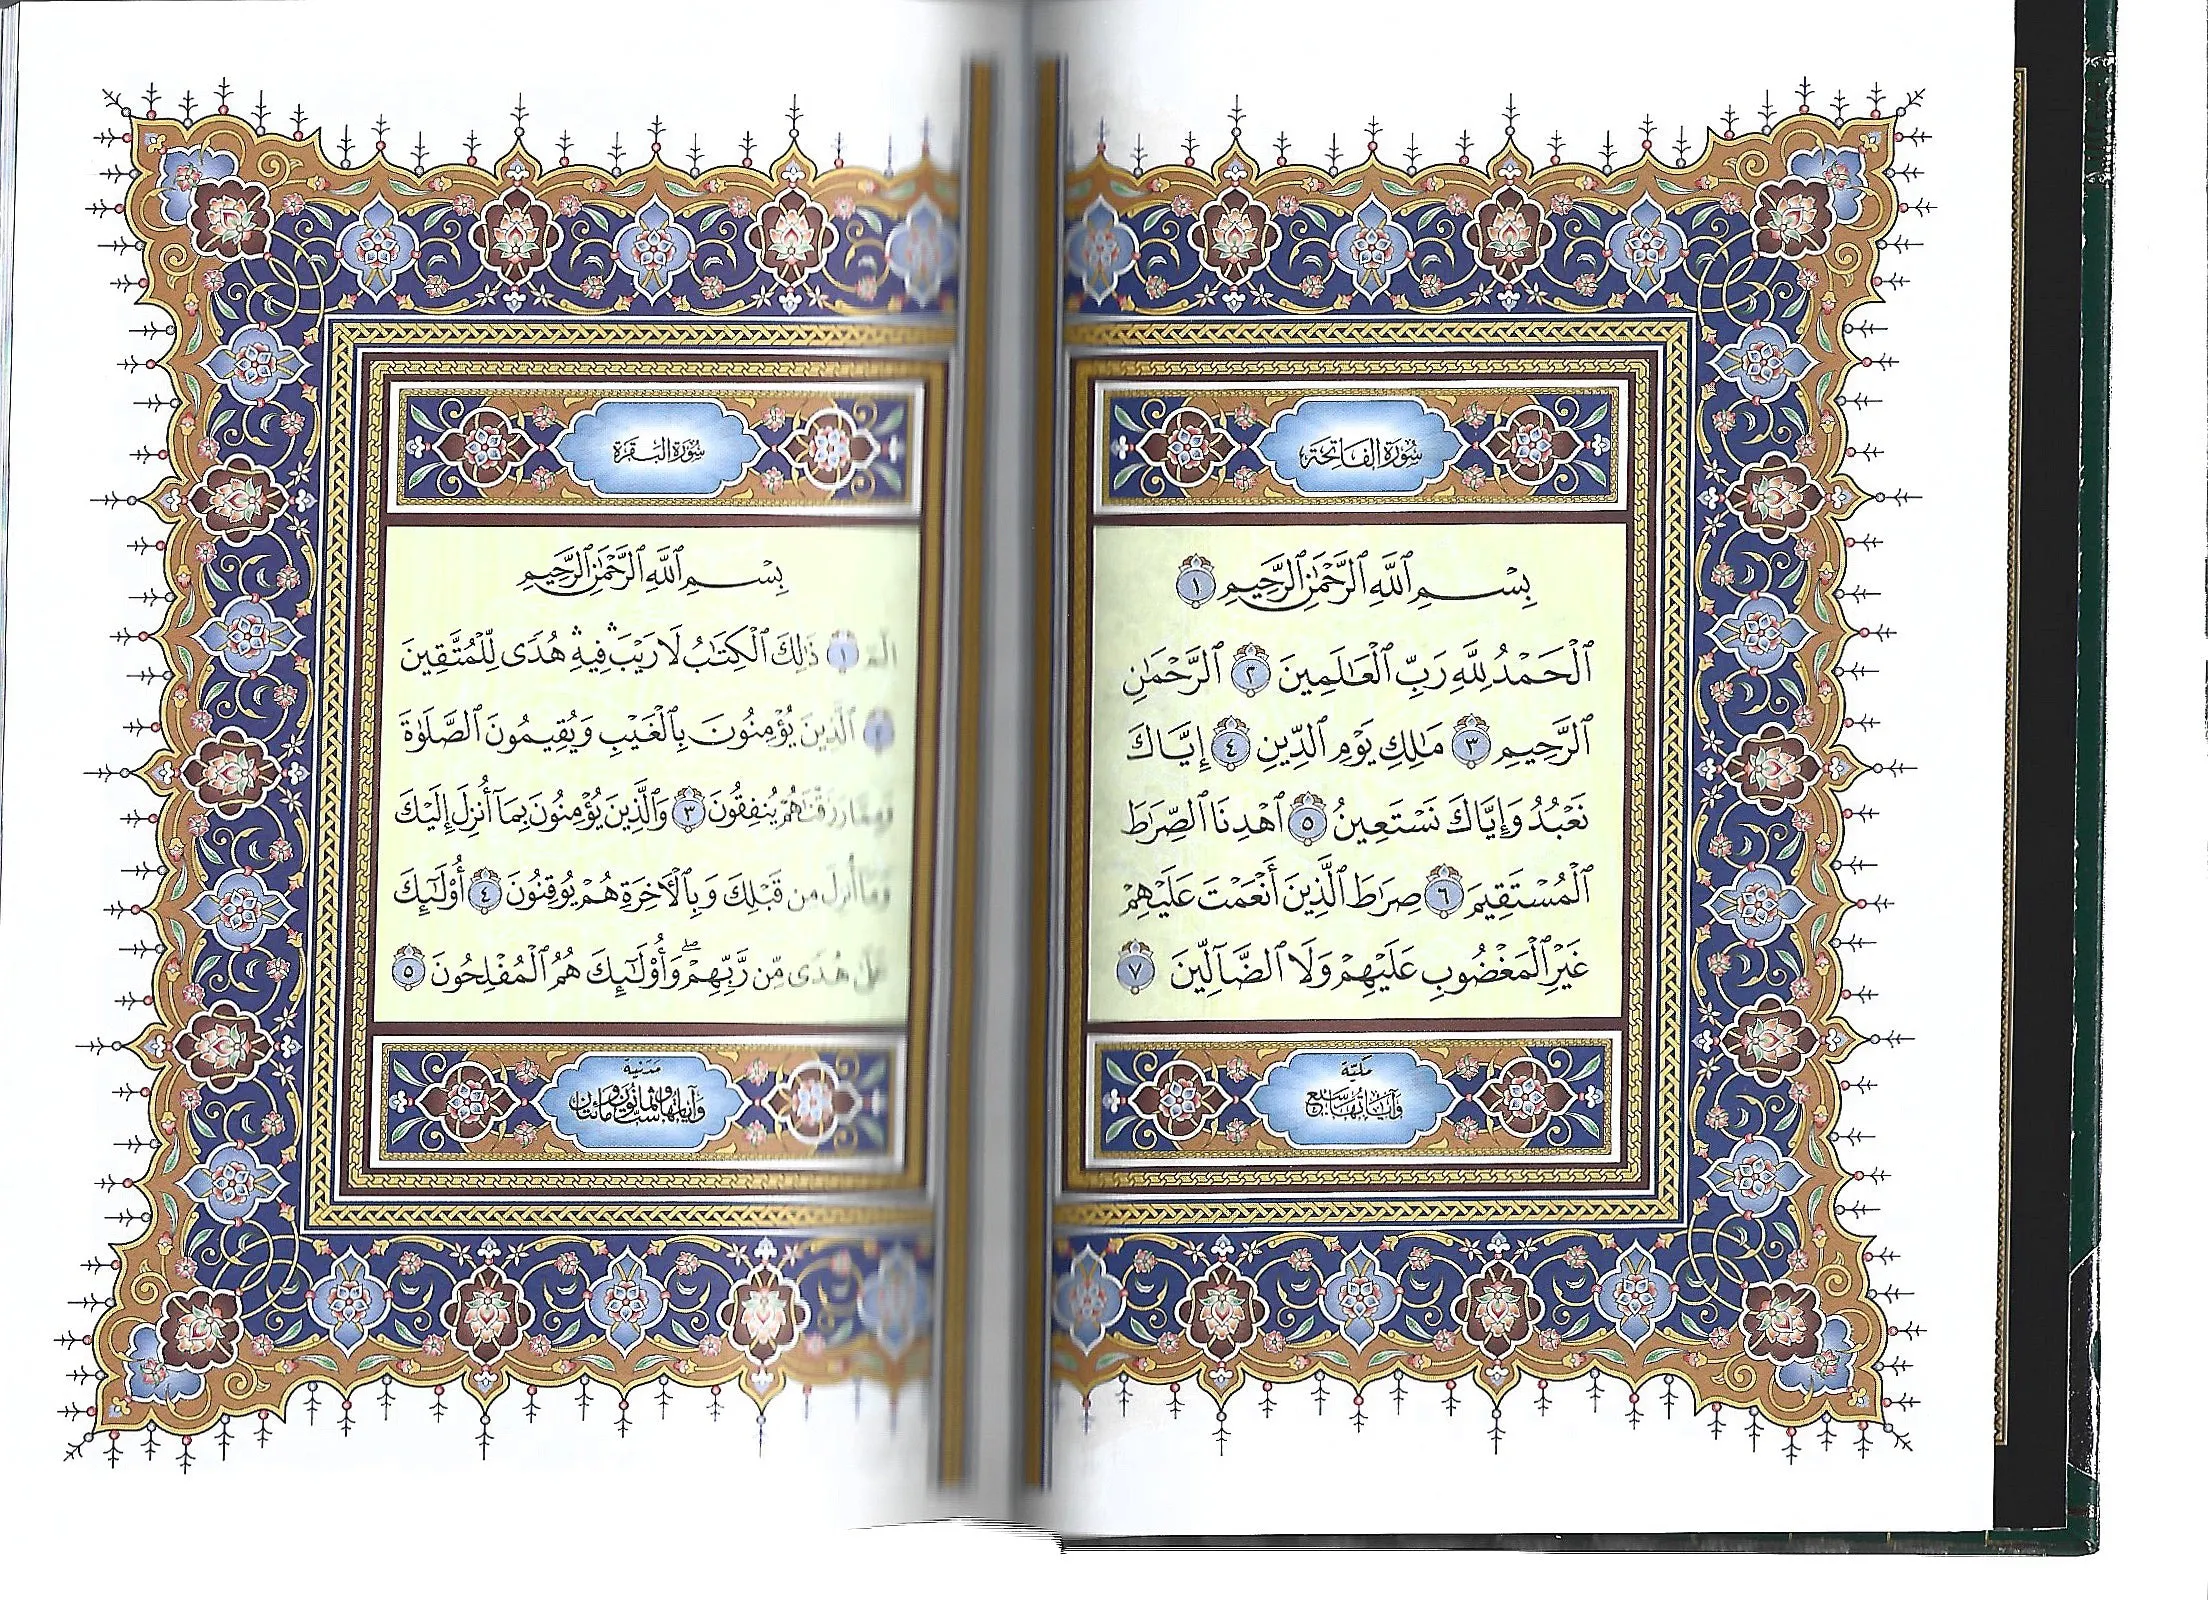 سُورَةُ الفَاتِحَة
بِسْمِ ٱللَّهِ ٱلرَّحْمَٰنِ ٱلرَّحِيمِ ١
ٱلْحَمْدُ لِلَّهِ رَبِّ ٱلْعَٰلَمِينَ ٢ ٱلرَّحْمَٰنِ
ٱلرَّحِيمِ ٣ مَٰلِكِ يَوْمِ ٱلدِّينِ ٤ إِيَّاكَ
نَعْبُدُ وَإِيَّاكَ نَسْتَعِينُ ٥ ٱهْدِنَا ٱلصِّرَٰطَ
ٱلْمُسْتَقِيمَ ٦ صِرَٰطَ ٱلَّذِينَ أَنْعَمْتَ عَلَيْهِمْ
غَيْرِ ٱلْمَغْضُوبِ عَلَيْهِمْ وَلَا ٱلضَّآلِّينَ ٧
مَكيّة
وَآيَاتُهَا سَبْع
سُورَةُ البَقَرَة
بِسْمِ ٱللَّهِ ٱلرَّحْمَٰنِ ٱلرَّحِيمِ
الٓمٓ ١ ذَٰلِكَ ٱلْكِتَٰبُ لَا رَيْبَ ۛ فِيهِ ۛ هُدًى لِّلْمُتَّقِينَ
٢ ٱلَّذِينَ يُؤْمِنُونَ بِٱلْغَيْبِ وَيُقِيمُونَ ٱلصَّلَوٰةَ
وَمِمَّا رَزَقْنَٰهُمْ يُنفِقُونَ ٣ وَٱلَّذِينَ يُؤْمِنُونَ بِمَآ أُنزِلَ إِلَيْكَ
وَمَآ أُنزِلَ مِن قَبْلِكَ وَبِٱلْءَاخِرَةِ هُمْ يُوقِنُونَ ٤ أُو۟لَٰٓئِكَ
عَلَىٰ هُدًى مِّن رَّبِّهِمْ ۖ وَأُو۟لَٰٓئِكَ هُمُ ٱلْمُفْلِحُونَ ٥
مَدَنيّة
وَآيَاتُهَا سِتٌّ وَثَمَانُونَ وَمِائَتَانِ